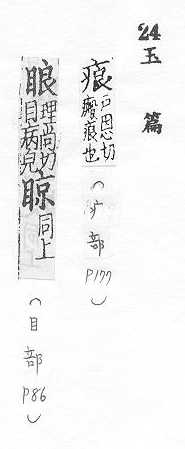 24 玉 篇
痕 戸恩切 瘢痕也 (疒部 P177)
䀶 理尚切 目病皃 䁁 同上 (目部 P86)